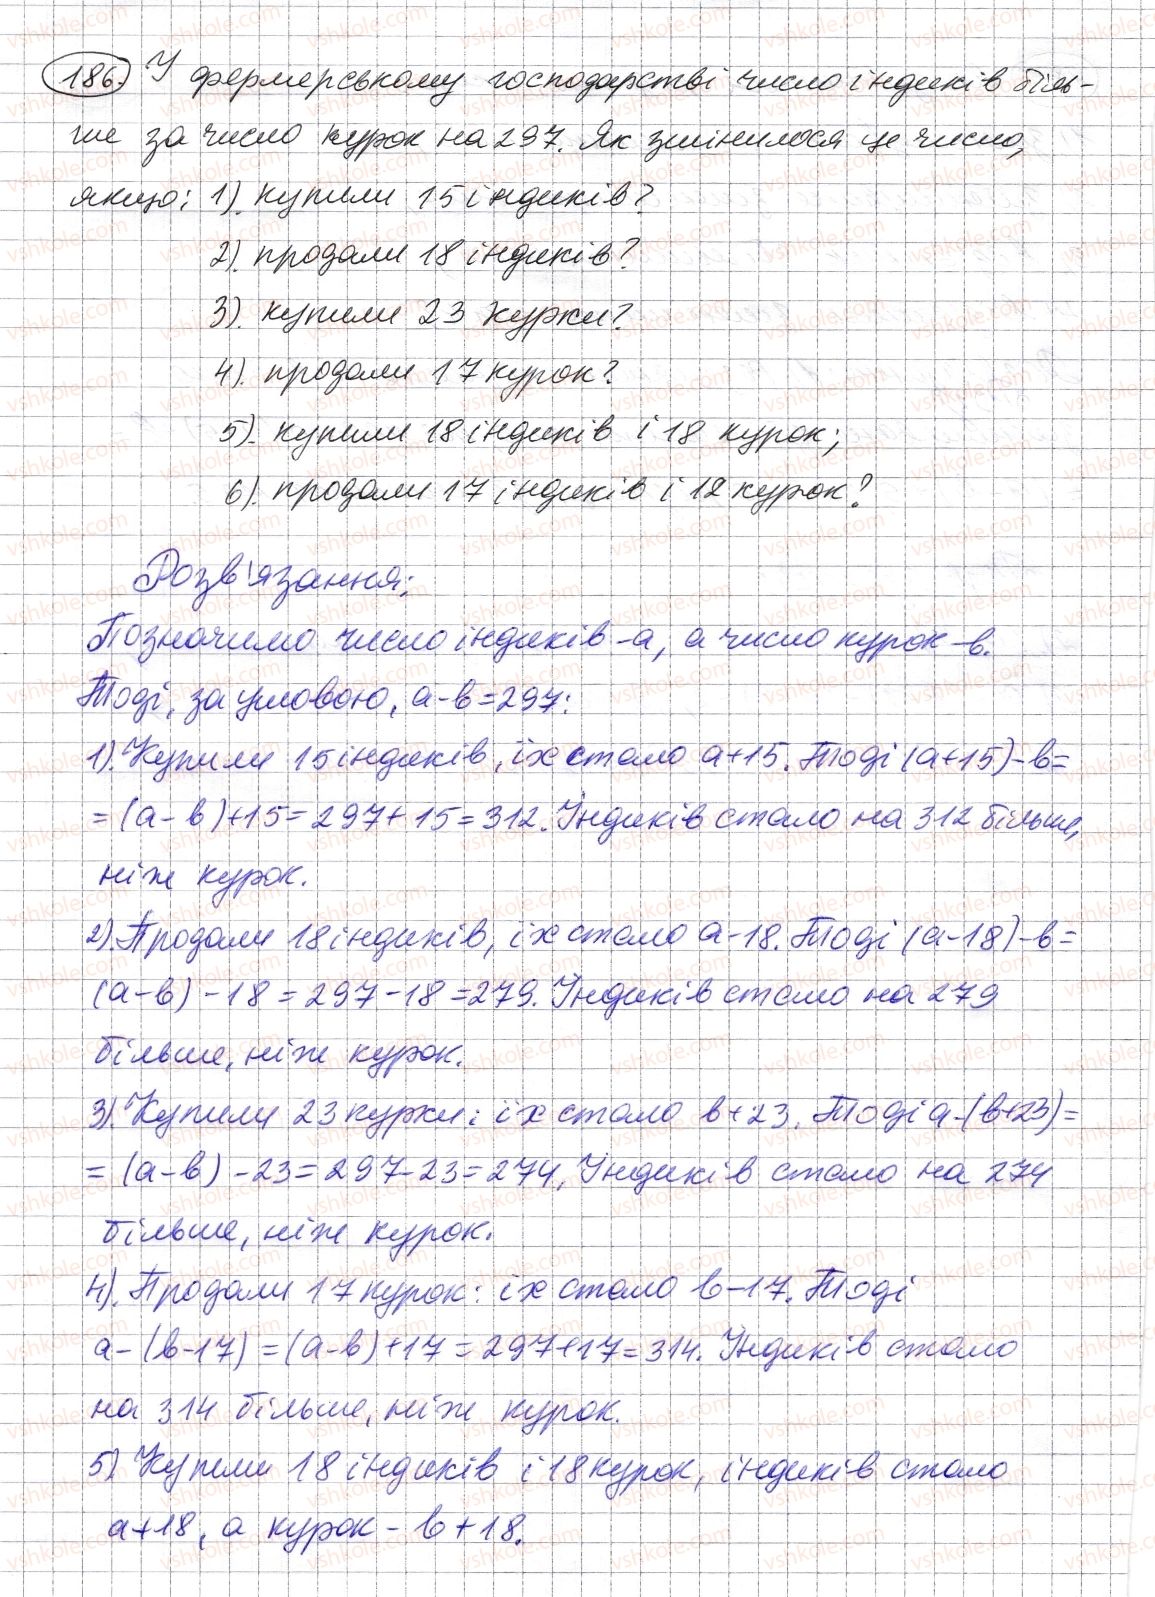 186. У фермерському господарстві число індиків біль-
ше за число курок на 297. Як змінилося це число,
якщо: 1). купили 15 індиків?
2). продали 18 індиків?
3). купили 23 курки?
4). продали 17 курок?
5). купили 18 індиків і 18 курок;
6). продали 17 індиків і 12 курок?
Розв'язання:
Позначимо число індиків - а, а число курок - в.
Тоді, за умовою, а - в = 297:
1). Купили 15 індиків, їх стало а+15. Тоді (а+15)-в=
= (а - в)+15 = 297 + 15 = 312. Індиків стало на 312 більше,
ніж курок.
2). Продали 18 індиків, їх стало а-18. Тоді (а-18)-в=
(а-в) - 18 = 297 - 18 = 279. Індиків стало на 279
більше, ніж курок.
3). Купили 23 курки: їх стало в+23. Тоді а-(в+23)=
= (а-в) - 23 = 297 - 23 = 274, Індиків стало на 274
більше, ніж курок.
4). Продали 17 курок: їх стало в-17. Тоді
а-(в-17) = (а-в)+17 = 297+17 = 314. Індиків стало
на 314 більше, ніж курок.
5) Купили 18 індиків і 18 курок, індиків стало
а+18, а курок - в+18.